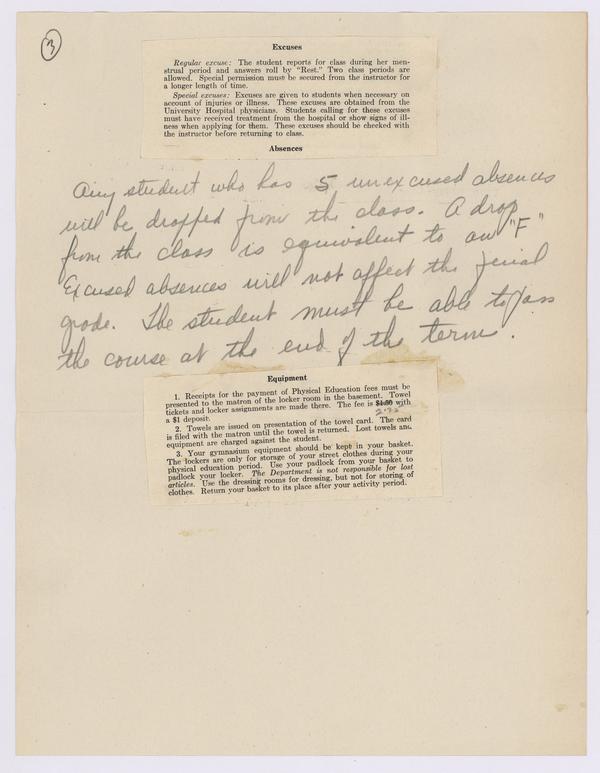 3
Excuses
Regular excuse: The student reports for class during her men-
strual period and answers roll by "Rest." Two class periods are
allowed. Special permission must be secured from the instructor for
a longer length of time.
Special excuses: Excuses are given to students when necessary on
account of injuries or illness. These excuses are obtained from the
University Hospital physicians. Students calling for these excuses
must have received treatment from the hospital or show signs of ill-
ness when applying for them. These excuses should be checked with
the instructor before returning to class.
Absences
Any student who has 5 unexcused absences
will be dropped from the class. A drop
from the class is equivalent to an "F"
Excused absences will not affect the final
grade. The student must be able to pass
the course at the end of the term.
Equipment
1. Receipts for the payment of Physical Education fees must be
presented to the matron of the locker room in the basement. Towel
tickets and locker assignments are made there. The fee is with
a $1 deposit.
2. Towels are issued on presentation of the towel card. The card
is filed with the matron until the towel is returned. Lost towels and
equipment are charged against the student.
3. Your gymnasium equipment should be kept in your basket.
The lockers are only for storage of your street clothes during your
physical education period. Use your padlock from your basket to
padlock your locker. The Department is not responsible for lost
articles. Use the dressing rooms for dressing, but not for storing of
clothes. Return your basket to its place after your activity period.